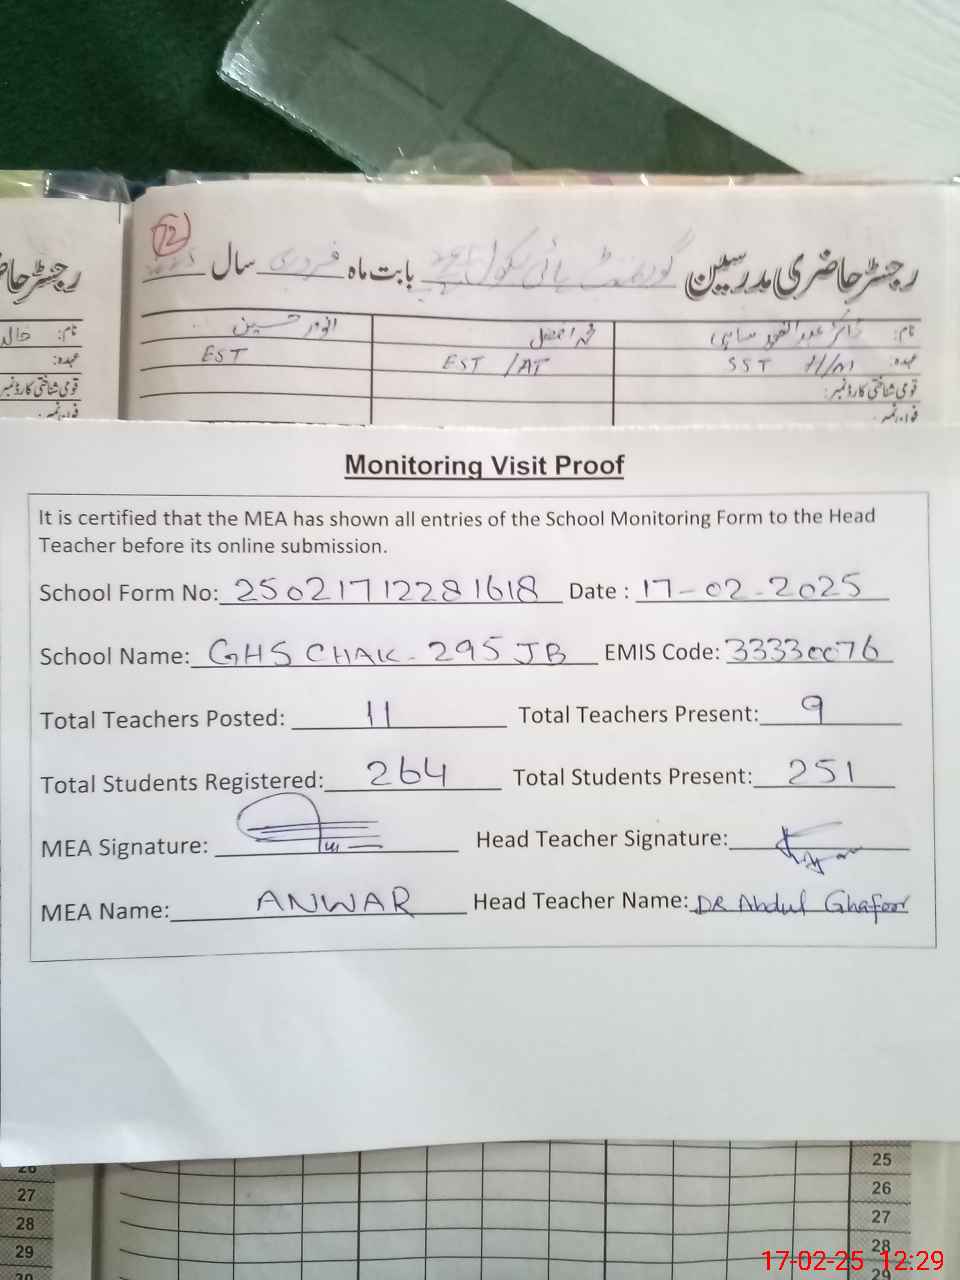 72
رجسٹر حاضری مدرسین گورنمنٹ ہائی سکول 295 بابت ماہ فروری سال
رجسٹر حا
نام: ڈاکٹر عبدالغفور ساہی محمد افضل انور حسین
نام: خالد
عہدہ: SST EST /AT EST
عہدہ:
قومی شناختی کارڈ نمبر:
قومی شناختی کارڈ نمبر
فون نمبر:
فون نمبر:
Monitoring Visit Proof
It is certified that the MEA has shown all entries of the School Monitoring Form to the Head
Teacher before its online submission.
School Form No: 25021712281618 Date : 17-02-2025
School Name: GHS CHAK-295 JB EMIS Code: 33330076
Total Teachers Posted: 11 Total Teachers Present: 9
Total Students Registered: 264 Total Students Present: 251
MEA Signature: Head Teacher Signature:
MEA Name: ANWAR Head Teacher Name: DR Abdul Ghafoor
26
27
28
29
30
25
26
27
28
29
17-02-25 12:29